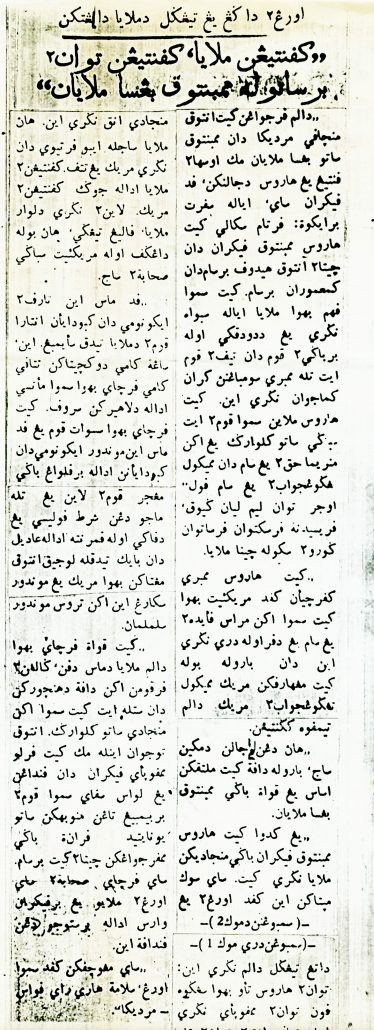 اورڠ٢ داڬڠ يڠ تيڠݢل دملايا دالڤتکن
,,کڤنتيڠن ملايا، کڤنتيڠن توان٢
برساتوله ممبنتوق بڠسا ملايان“
,,دالم ڤرجواڠن کيت اونتوق
منچاڤي مرديکا دان ممبنتوق
ساتو بڠسا ملايان مک اوسها٢
ڤنتيڠ يڠ هاروس دجالنکن، ڤد
فيکران ساي، اياله سڤرت
برايکوة: ڤرتام سکالي کيت
هاروس ممبنتوق فيکران دان
چيتا٢ انتوق هيدوڤ برسام دان
کمعموران برسام. کيت سموا
فهم بهوا ملايا اياله سبواه
نݢري يڠ ددودقکي اوله
برباݢي٢ قوم دان تيڤ٢ قوم
ايت تله ممبري سومباڠن کران
کماجوان نݢري اين. کيت
هاروس ملاين سموا قوم٢ ايت
ساتو کلوارݢ يڠ اکن
منريما حق٢ يڠ سام دان ميکول
تڠݢوڠجواب٢ يڠ سام ڤول“
اوجر توان ليم ليان ݢيوق،
ڤريسيدنة ڤرسکتوان ڤرساتوان
ݢورو٢ سکوله چينا ملايا.
,,کيت هاروس ممبري
کڤرچيأن کڤد مريکئيت بهوا
کيت سموا اکن مراس فايده٢
يڠ سام يڠ دڤراوله دري نݢري
اين دان باروله بوله
کيت مڠهارڤکن مريک ميکول
تڠݢوڠجواب٢ مريک دالم
تيمڤوه ککنتيڠن.
,,هان دڠن جالن دمکين
ساج، باروله داڤة کيت ملتقکن
اساس يڠ قواة باݢي ممبنتوق
بڠسا ملايان.
,,يڠ کدوا کيت هاروس
ممبنتوق فيکران باݢي منجاديکن
ملايا نݢري کيت. ساي سوک
ميتاکن اين کڤد اورڠ٢ يڠ
–( سمبوڠن دموک 2 )–
–( سمبوڠن دري موک 1 )–
داتڠ تيڠݢل دالم نݢري اين:
توان٢ هاروس تاو بهوا سڠݢوه
ڤون توان٢ ممڤوڽاي نݢري
منجادي انق نݢري اين. هان
ملايا ساجله ايبو ڤرتيوي دان
نݢري مريک يڠ تتڤ. کڤنتيڠن٢
ملايا اداله جوݢ کڤنتيڠن٢
مريک. لاين٢ نݢري دلوار
ملايا، ڤاليڠ تيڠݢي، هان بوله
داڠݢڤ اوله مريکئيت سباݢي
صحابة٢ ساج.
,,ڤد ماس اين تارف٢
ايکونومي دان کبودايأن انتارا
قوم٢ دملايا تيدق سأيمبڠ. اين،
ساڠة کامي دوکچيتاکن تتاڤي
کامي ڤرچاي بهوا سموا مأنسي
اداله دلاهيرکن سروڤ. کيت
ڤرچاي بهوا سوات قوم يڠ ڤد
ماس اين موندور ايکونومي دان
کبودايأنن اداله برڤلواڠ باݢي
مڠجر قوم٢ لاين يڠ تله
ماجو دڠن شرط ڤوليسي يڠ
دڤاکي اوله ڤمرنته اداله عاديل
دان باءيک تيدقله لوجيق اونتوق
مڠتاکن بهوا مريک يڠ موندور
سکارڠ اين اکن تروس موندور
سلملمان.
,,کيت قواة ڤرچاي بهوا
دالم ملايا دماس دڤن، ݢالڠن٢
ڤرقومن اکن داڤة دهنچورکن
دان ستله ايت کيت سموا اکن
منجادي ساتو کلوارݢ. انتوق
توجوان اينله مک کيت ڤرلو
ممڤوڽاي فيکران دان ڤنداڠن
يڠ لواس سڤاي سموا قوم٢
بربيمبيڠ تاڠن منوبهکن ساتو
يونايتيد ڤرانة باݢي
ممڤرجواڠکن چيتا٢ کيت برسام.
ساي ڤرچاي، صحابة٢ ساي
اورڠ٢ ملايو يڠ برفيکيران
وارس اداله برستوجو دڠن
ڤندافة اين.
,,ساي مڠوچڤکن کڤد سموا
اورڠ، سلامة هاري راي ڤواس
– مرديکا“